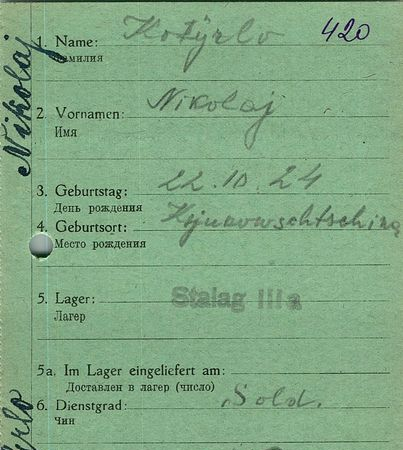 Nikolaj
1. Name: Kotyrlo 420
Фамилия
2. Vornamen: Nikolaj
Имя
3. Geburtstag: 22.10.24
День рождения
4. Geburtsort:
Место рождения
5. Lager: Stalag IIIa
Лагерь
5a. Im Lager eingeliefert am:
Доставлен в лагерь (число)
6. Dienstgrad: Sold.
Чин